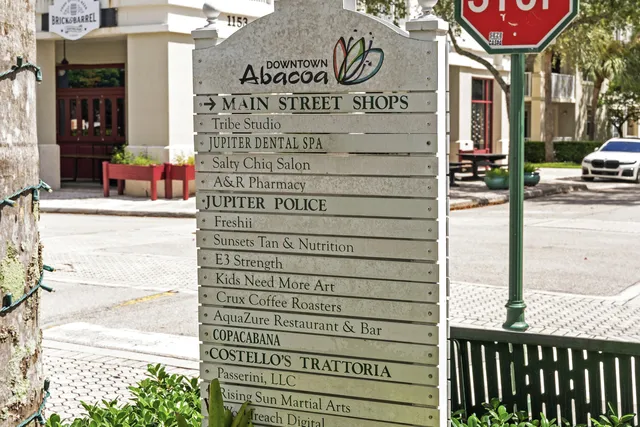 BRICK & BARREL
1153
STOP
DOWNTOWN
Abacoa
→ MAIN STREET SHOPS
Tribe Studio
JUPITER DENTAL SPA
Salty Chiq Salon
A&R Pharmacy
JUPITER POLICE
Freshii
Sunsets Tan & Nutrition
E3 Strength
Kids Need More Art
Crux Coffee Roasters
AquaZure Restaurant & Bar
COPACABANA
COSTELLO'S TRATTORIA
Passerini, LLC
Rising Sun Martial Arts
Digital